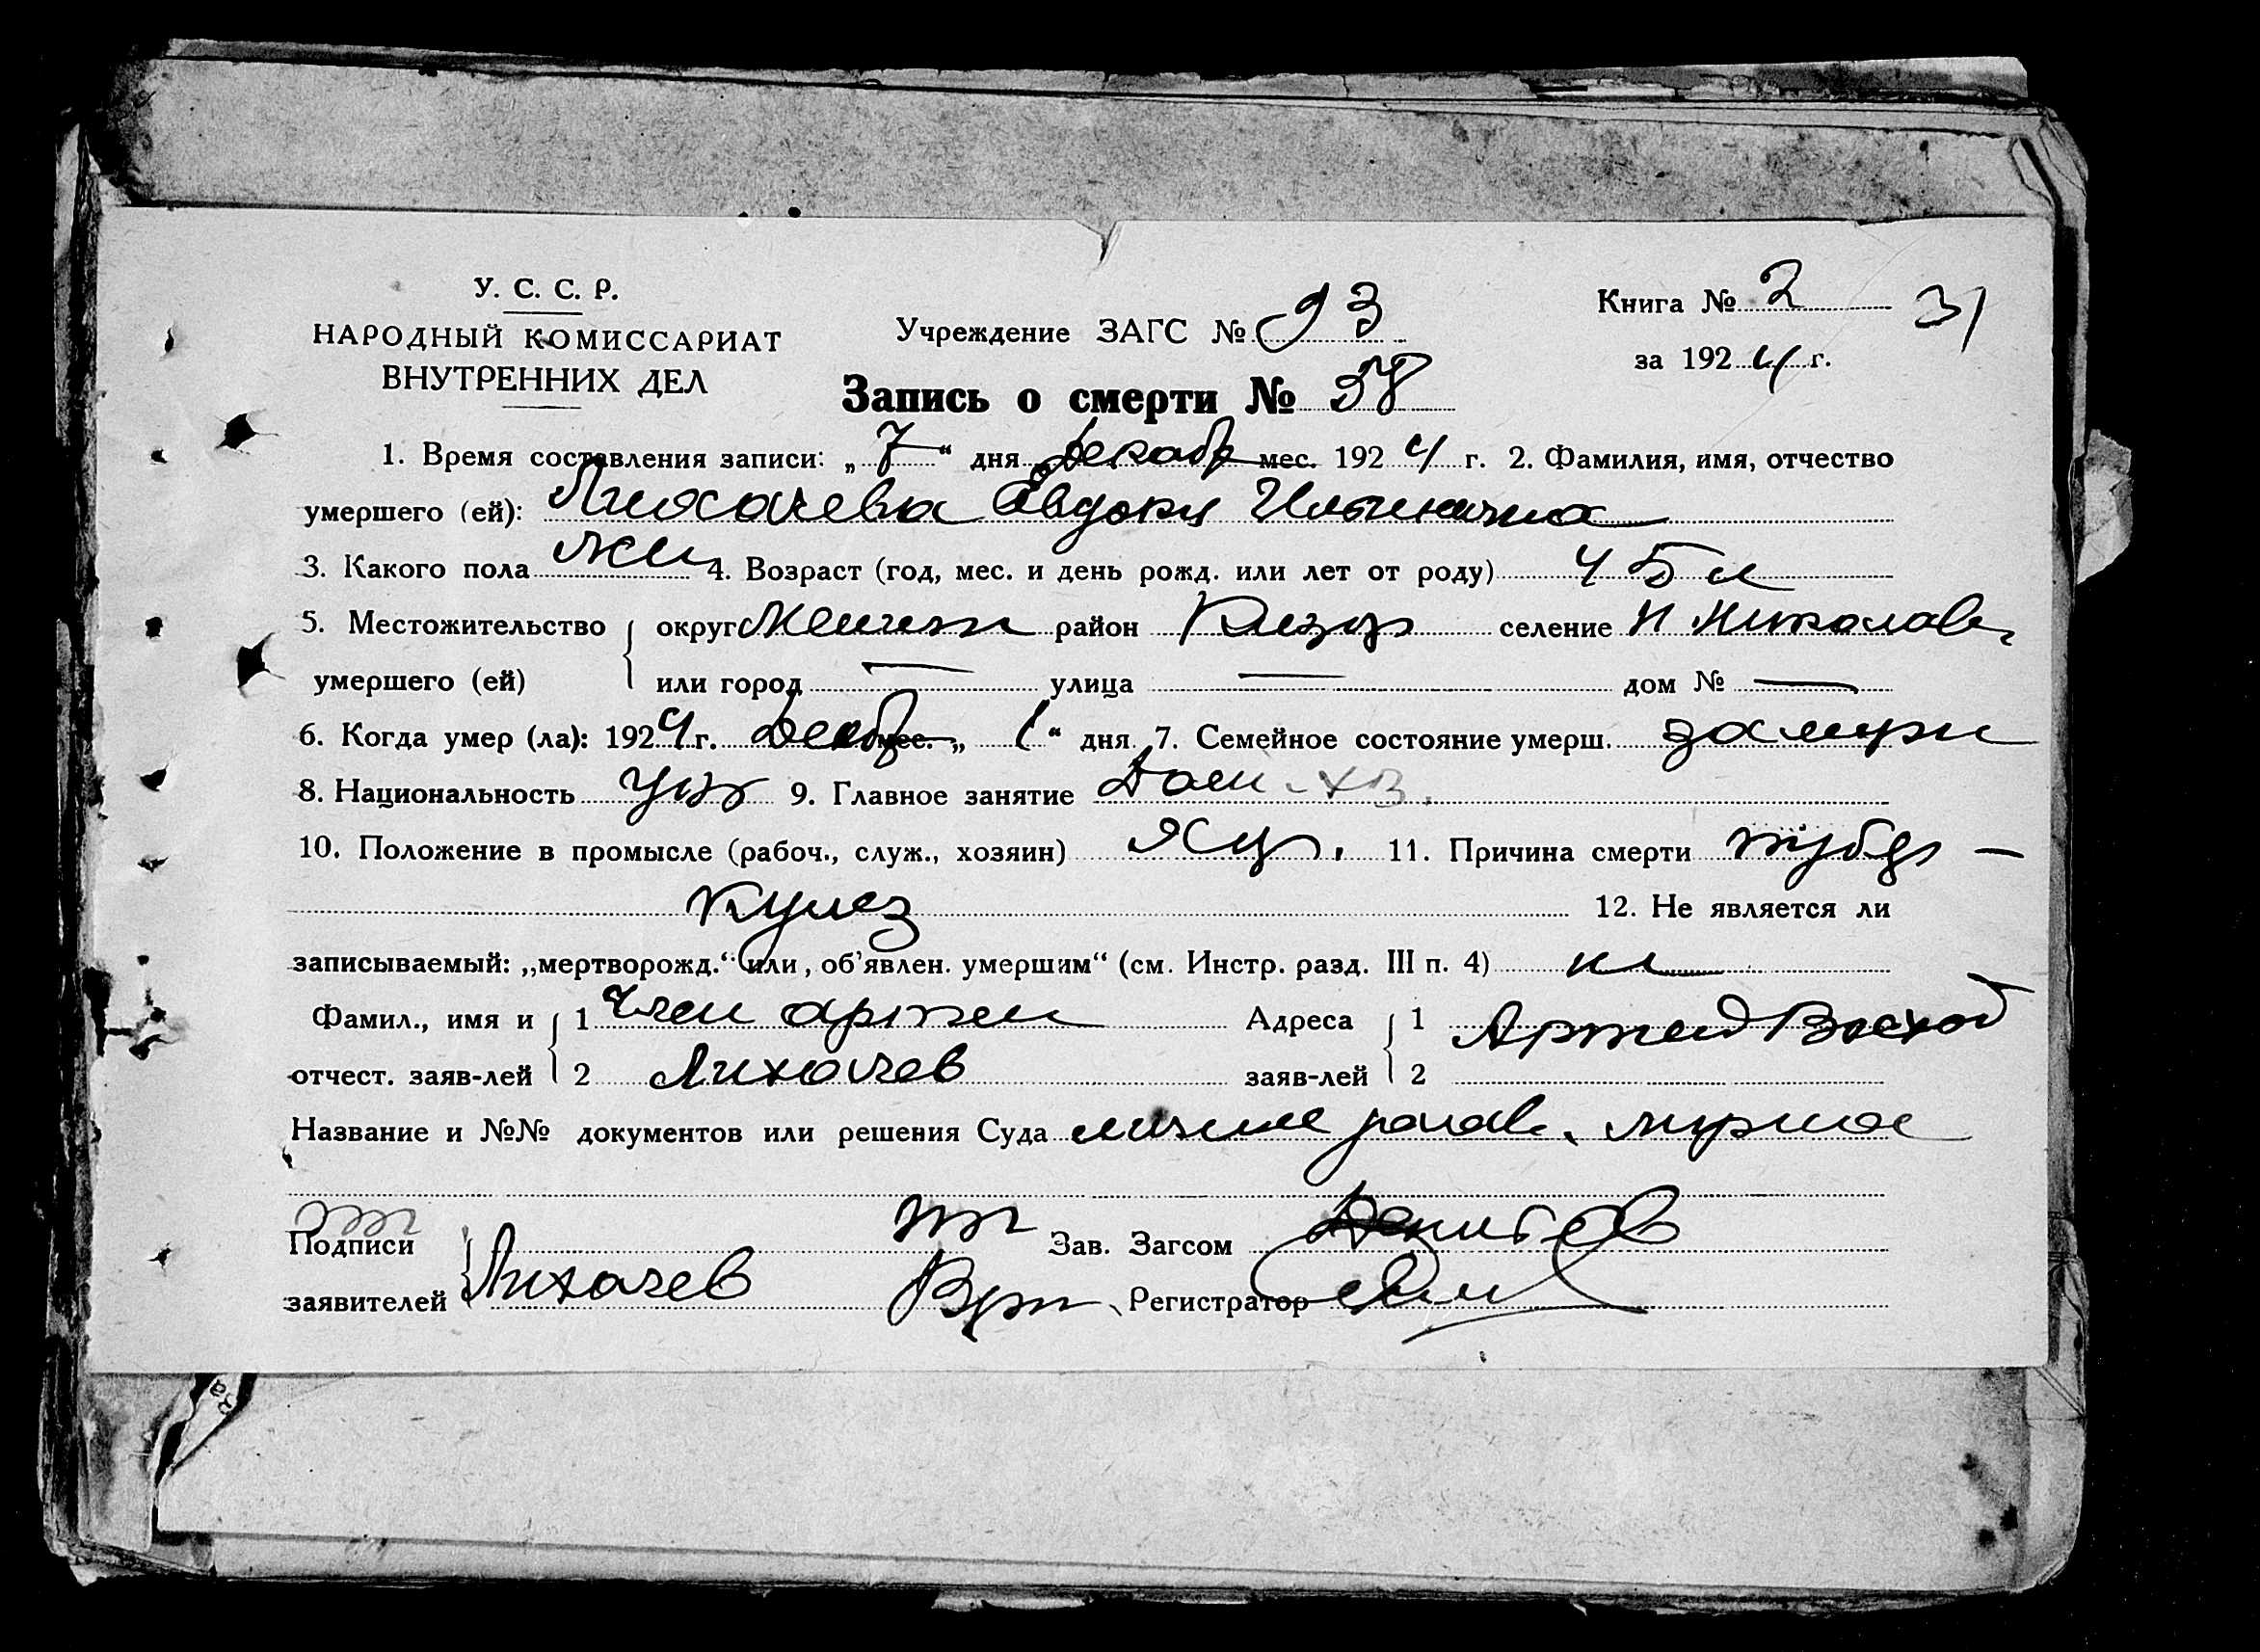 У. С. С. Р.
НАРОДНЫЙ КОМИССАРИАТ
ВНУТРЕННИХ ДЕЛ
Учреждение ЗАГС № 93
Книга № 2
31
за 1924 г.
Запись о смерти № 38
1. Время составления записи: „7“ дня Декабр мес. 1924 г. 2. Фамилия, имя, отчество
умершего (ей): Лихачева Евдоки Ильинична
3. Какого пола жен 4. Возраст (год, мес. и день рожд. или лет от роду) 45 л
5. Местожительство округ район селение Н Николаев
умершего (ей) или город — улица — дом № —
6. Когда умер (ла): 1924 г. Декабр мес. „1“ дня 7. Семейное состояние умерш. замужн
8. Национальность укр 9. Главное занятие Дом-хоз.
10. Положение в промысле (рабоч., служ., хозяин) 11. Причина смерти тубер —
кулез 12. Не является ли
записываемый: „мертворожд.“ или „об’явлен. умершим“ (см. Инстр. разд. III п. 4) не
Фамил., имя и 1 Член артели Адреса 1 Артель Восход
отчест. заяв-лей 2 Лихачев заяв-лей 2
Название и №№ документов или решения Суда личное
Подписи Зав. Загсом
заявителей Лихачев Регистратор